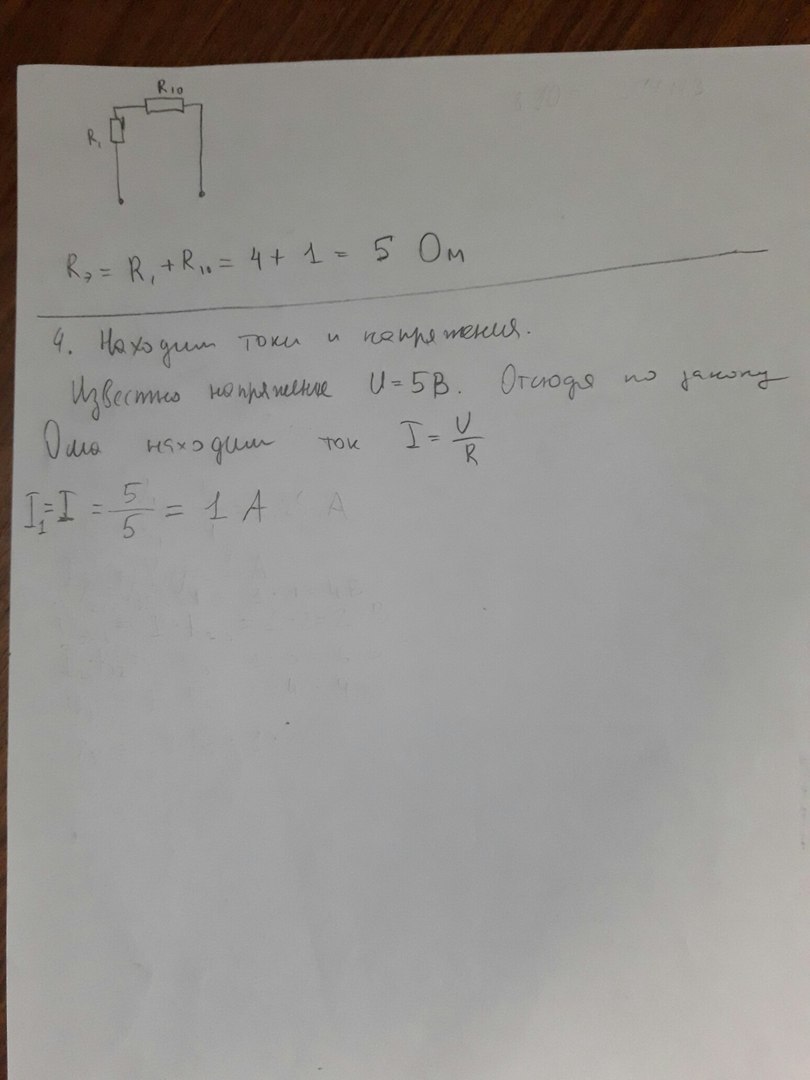 R10
R1
Rэ = R1 + R10 = 4 + 1 = 5 Ом
4. Находим токи и напряжения.
Известно напряжение U = 5В. Отсюда по закону
Ома находим ток I = U/R
I1 = I = 5/5 = 1 А